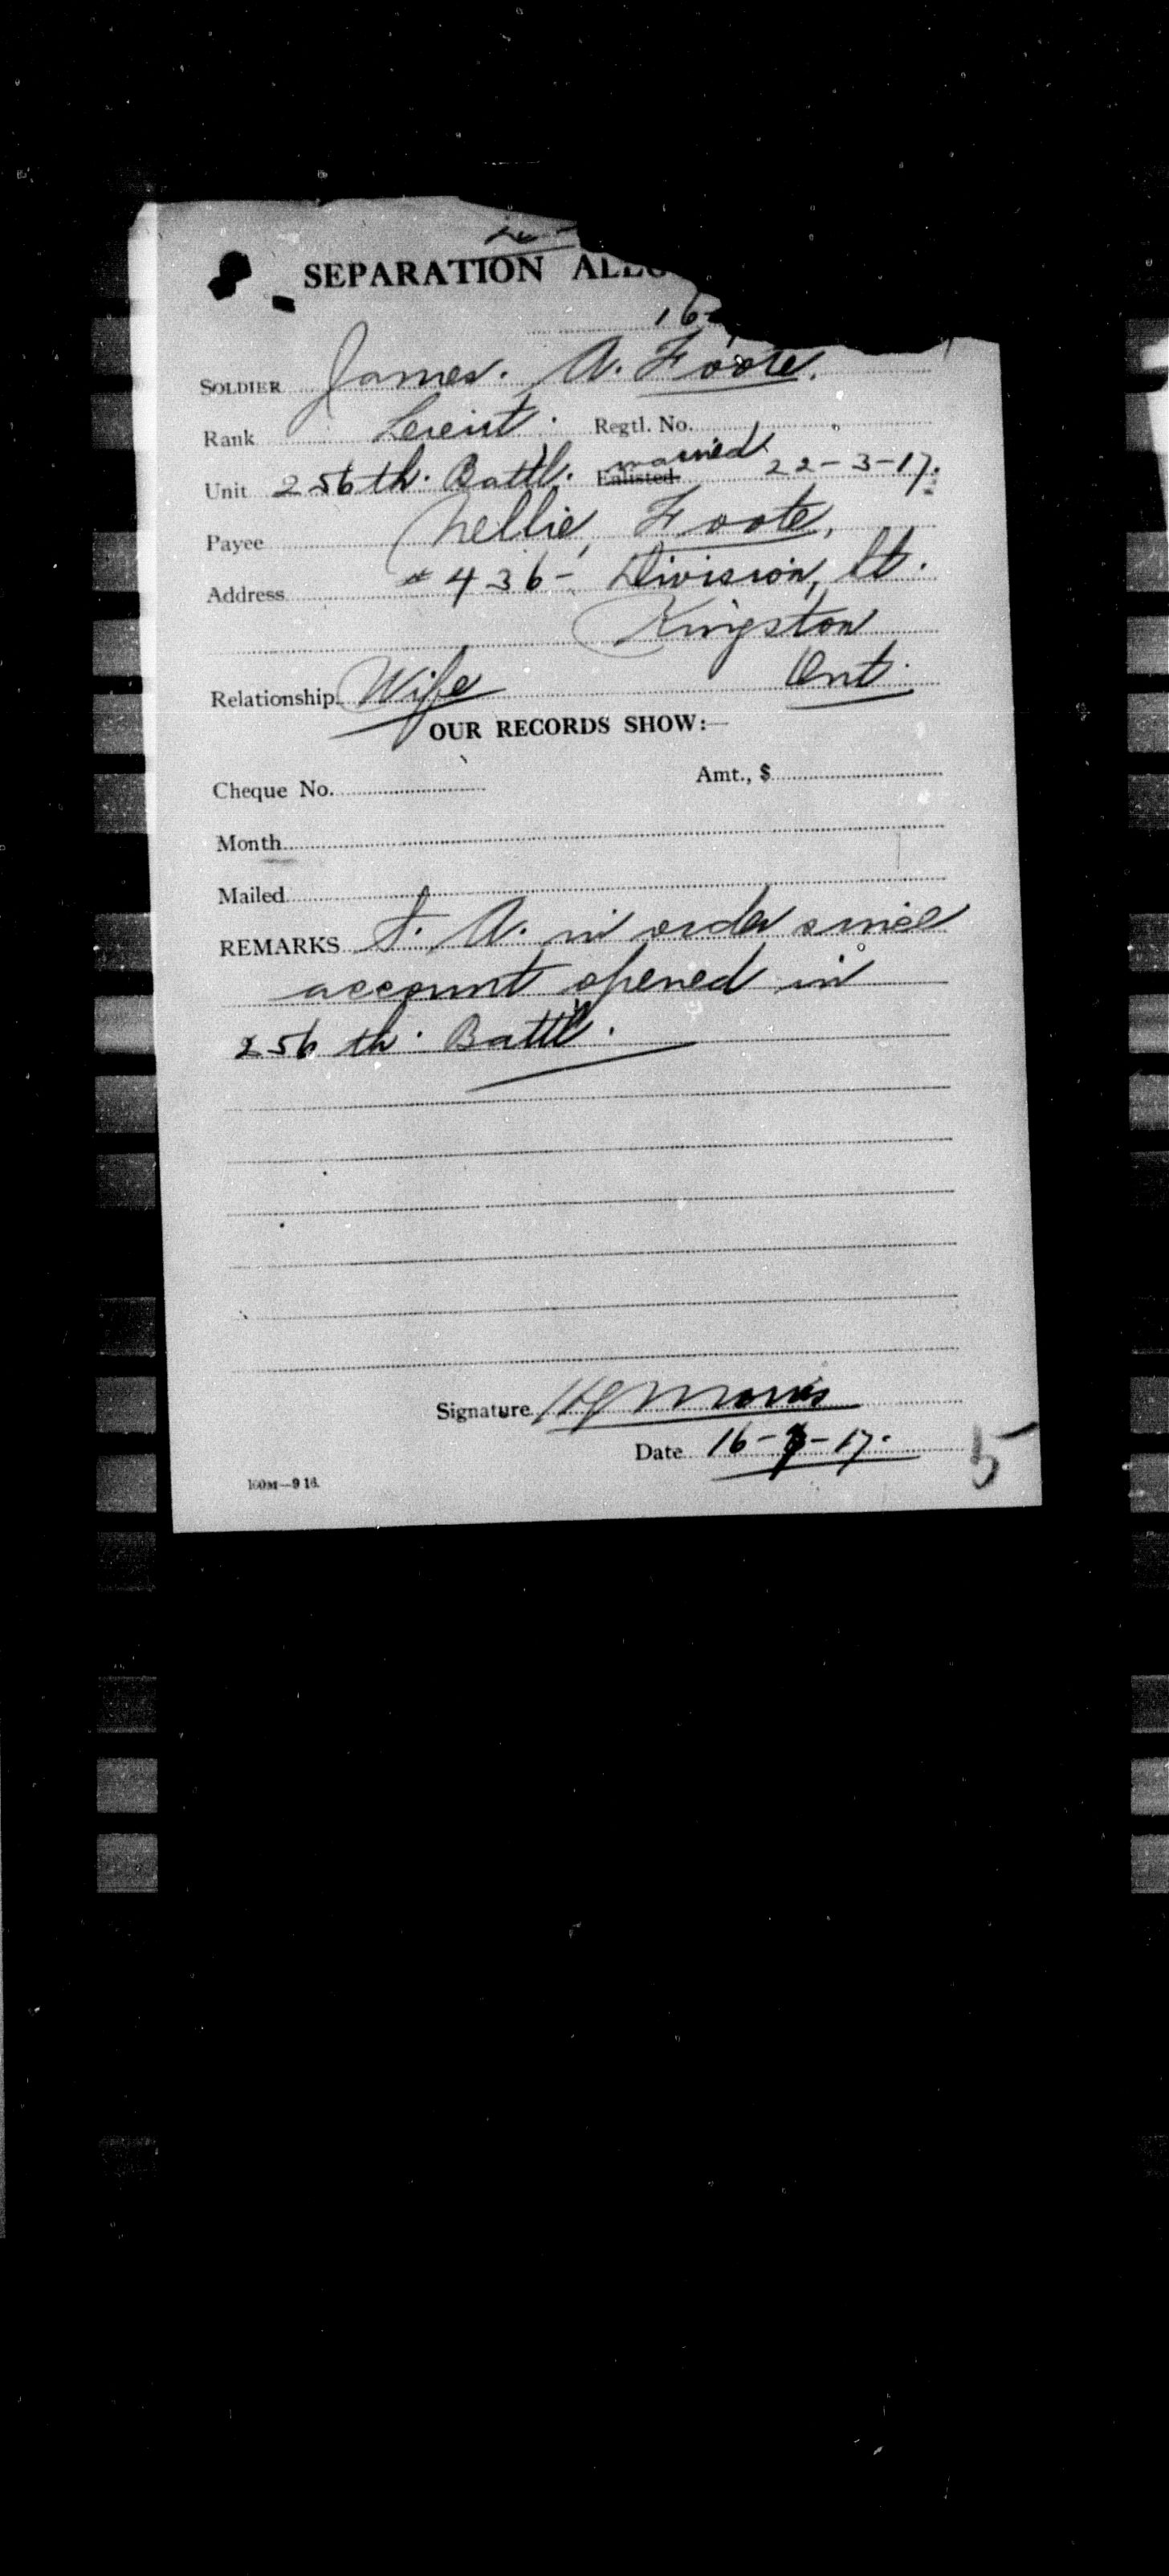 SEPARATION ALLO
16-
SOLDIER James. A. Foote.
Rank Lieut. Regtl. No.
married
Unit 256th. Battl. Enlisted 22-3-17.
Payee Nellie, Foote,
Address # 436- Division, St.
Kingston
Relationship Wife Ont.
OUR RECORDS SHOW:—
Cheque No. Amt., $
Month
Mailed
REMARKS S. A. in order since
account opened in
256 th. Battl.
Signature Morris
Date 16- -17.
5
100M—9 16.